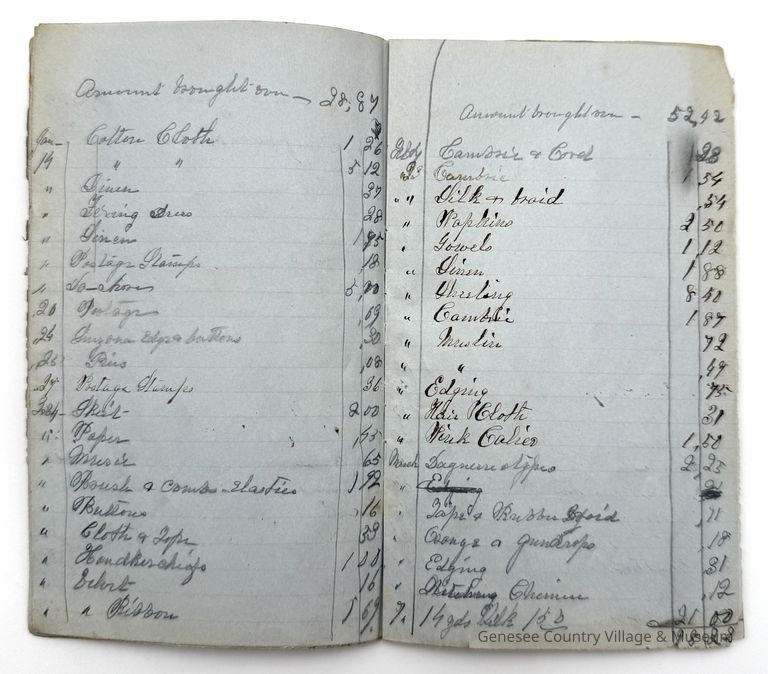 Amount brought over — 28,87
Jan— Cotton Cloth 1 26
14 " " 5 12
" Linen 37
" Dress 28
" Linen 1 95
" Postage Stamps ,18
" 5,00
20 Postage ,09
24 Edge & buttons 30
25 Pins ,08
27 Postage Stamps 36
Feb— Skirt 2 00
" Paper
" Music 65
" Brush & Combs—Elastics 1
" Buttons ,16
" Cloth & Tape 59
" Handkerchiefs 1
" 16
" " Ribbon 1 69
Amount brought over — 52,42
Cambric & Cord 28
Cambric 1 54
" " Silk & braid ,54
" Napkins 2 50
" Towels 1 12
" Linen 1 88
" Sheeting 8 50
" Cambric 1 87
" Muslin 72
" " ,49
" Edging 75
" Hair Cloth 31
" Pink Calico 1,50
March Daguerreotypes 2 25
"
" Tape & Braid ,71
" & Gumdrops ,18
" Edging 31
" Chemise ,12
7. 14 yds Silk 150 21 00
Genesee Country Village & Museum